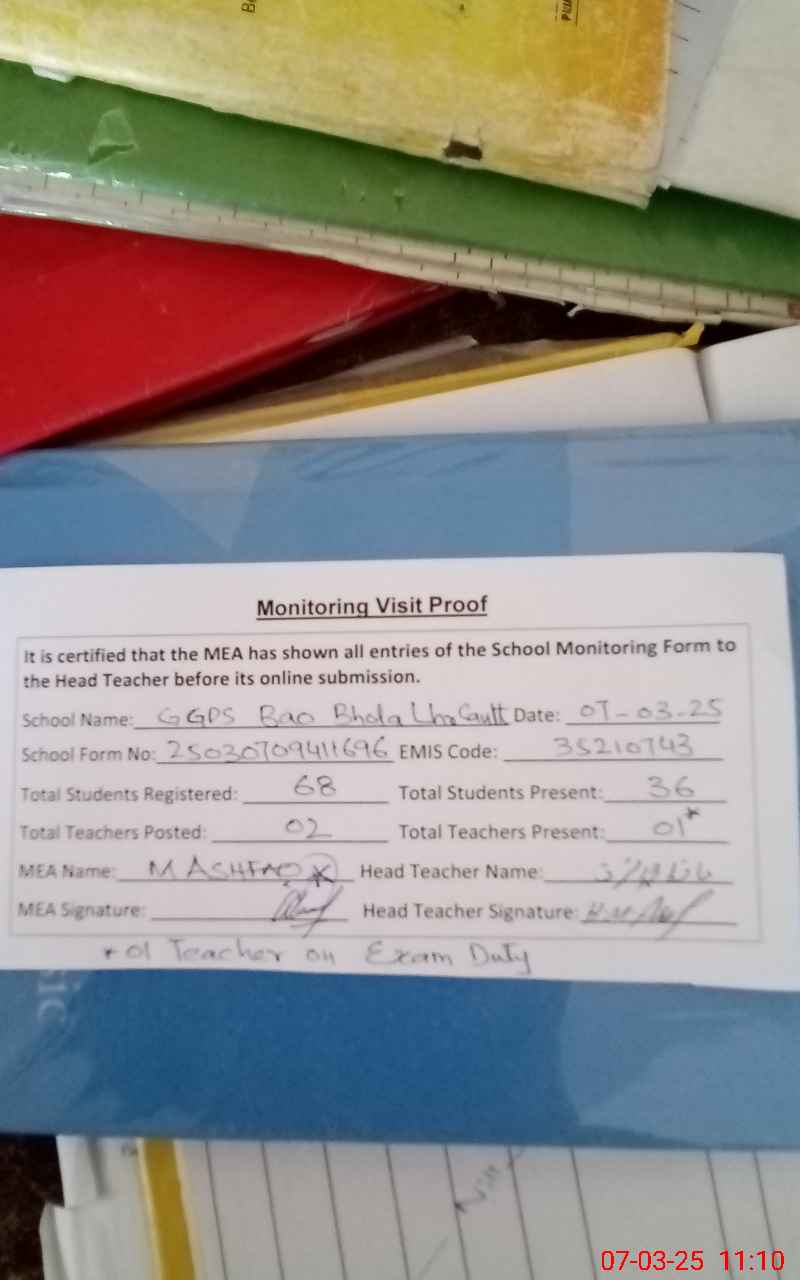 Monitoring Visit Proof
It is certified that the MEA has shown all entries of the School Monitoring Form to
the Head Teacher before its online submission.
School Name: GGPS Bao Bhola Lhr Cautt Date: 07-03-25
School Form No: 25030709411696 EMIS Code: 35210743
Total Students Registered: 68 Total Students Present: 36
Total Teachers Posted: 02 Total Teachers Present: 01*
MEA Name: M ASHFAQ Head Teacher Name:
MEA Signature: Head Teacher Signature:
* 01 Teacher on Exam Duty
07-03-25 11:10